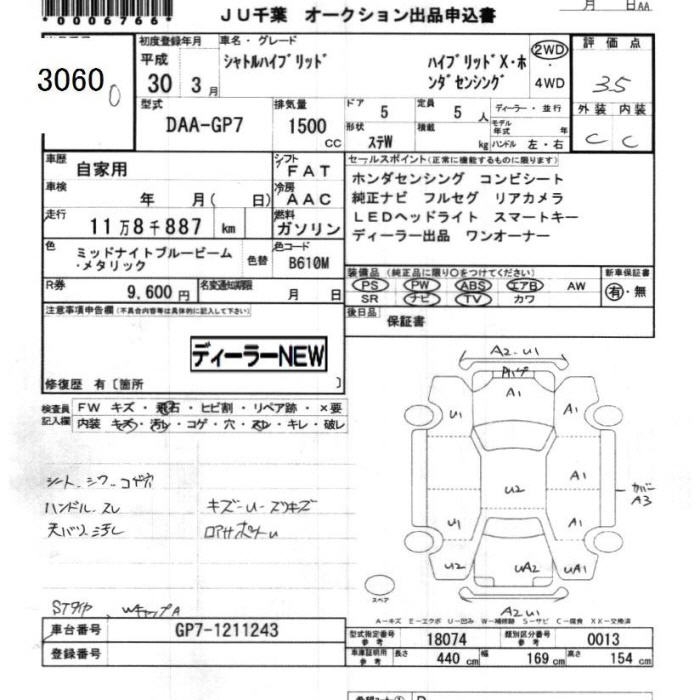 *0006766*
JU千葉 オークション出品申込書
月 日AA
3060
初度登録年月
平成
30 3月
車名・グレード
シャトルハイブリッド
ハイブリッドX・ホンダセンシング
2WD
・
4WD
評価点
3.5
外装 内装
C C
型式
DAA-GP7
排気量
1500
CC
ドア
5
定員
5 人
形状
ステW
積載
kg
ディーラー・並行
モデル年式 年
ハンドル 左・右
車歴
自家用
シフト
FAT
車検
年 月( 日)
冷房
AAC
走行
11万8千887 km
燃料
ガソリン
色
ミッドナイトブルービーム・メタリック
色替
色コード
B610M
R券
9,600円
名変通知期限
月 日
セールスポイント(正常に機能するものに限ります)
ホンダセンシング コンビシート
純正ナビ フルセグ リアカメラ
LEDヘッドライト スマートキー
ディーラー出品 ワンオーナー
装備品(純正品に限り○をつけてください)
PS PW ABS エアB AW
SR ナビ TV カワ
新車保証書
有・無
後日品
保証書
注意事項申告欄(不具合内容等は具体的に記入して下さい)
ディーラーNEW
修復歴 有〔箇所 〕
検査員記入欄
FW キズ・飛石・ヒビ割・リペア跡・×要
内装 キズ・汚レ・コゲ・穴・スレ・キレ・破レ
シート、シワ、コゲ穴
ハンドル、スレ
天バリ、汚し
キズ-U-スリキズ
STタイヤ、WキャップA
A2.U1
A1
U1
A1
A1
U2
カバー
A3
U1
A1
U2
UA2
UA1
スペア
A2U1
A-キズ E-エクボ U-凹み W-補修跡 S-サビ C-腐食 XX-交換済
車台番号
GP7-1211243
登録番号
型式指定番号
参考
18074
類別区分番号
参考
0013
車庫証明用
参考
長さ
440 cm
幅
169 cm
高さ
154 cm